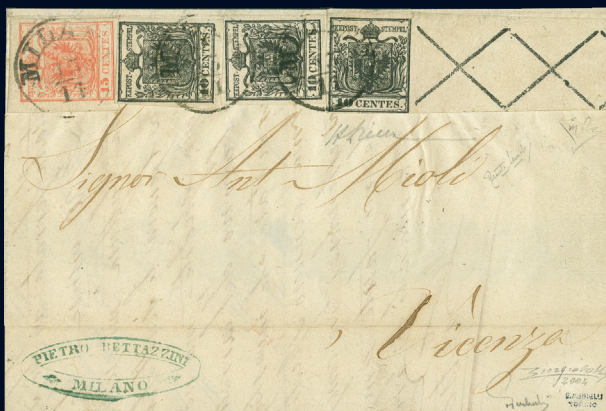 MILANO
15 CENTES.
KK POST-STEMPEL
10 CENTES.
KK POST-STEMPEL
10 CENTES.
KK POST-STEMPEL
10 CENTES.
Signor Ant Mioli
Vicenza
PIETRO BETTAZZINI
MILANO
2004
TORINO